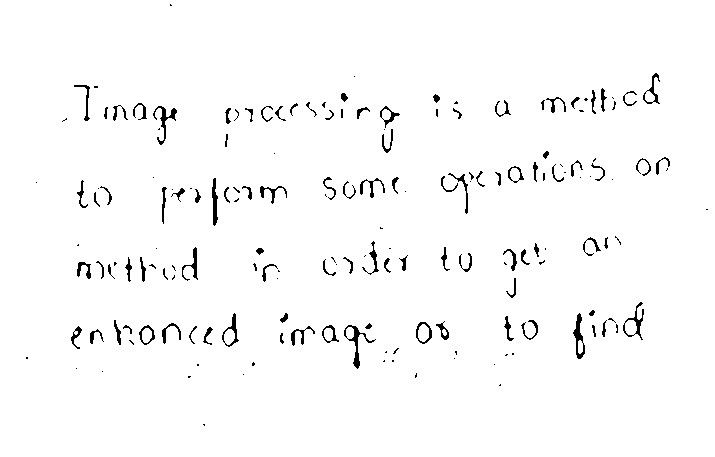 Image processing is a method
to perform some operations on
method in order to get an
enhanced image or to find